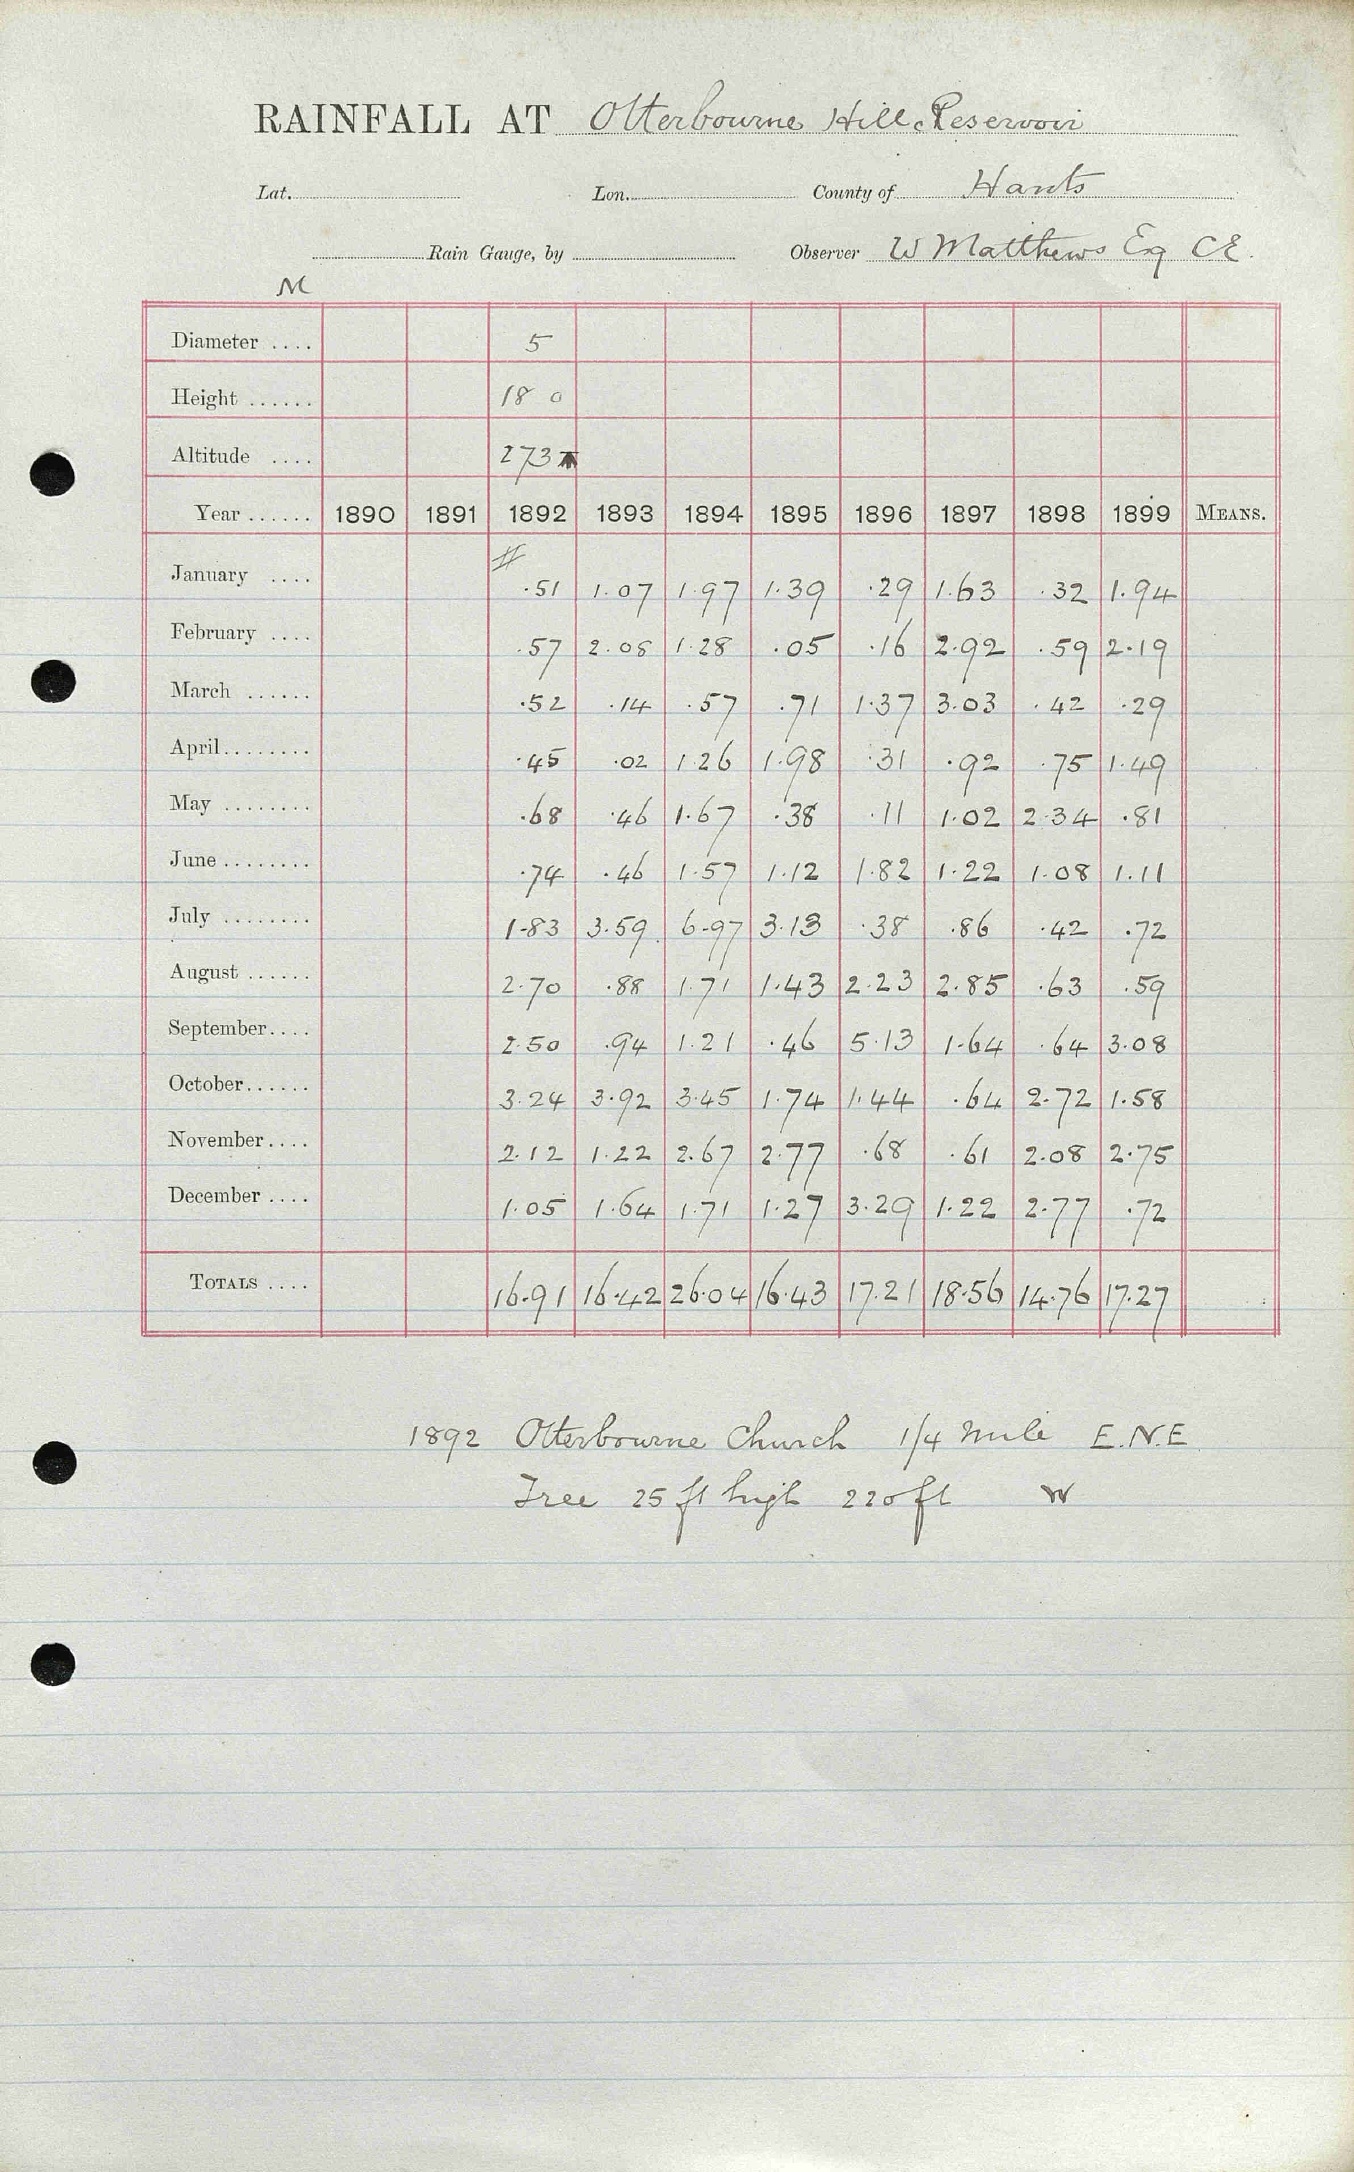 RAINFALL AT Otterbourne Hill Reservoir
Lat. Lon. County of Hants
Rain Gauge, by Observer W Matthews Esq CE.
M
Diameter .... 5
Height ...... 18 0
Altitude .... 273 T
Year ...... 1890 1891 1892 1893 1894 1895 1896 1897 1898 1899 MEANS.
#
January .... .51 1.07 1.97 1.39 .29 1.63 .32 1.94
February .... .57 2.08 1.28 .05 .16 2.92 .59 2.19
March ...... .52 .14 .57 .71 1.37 3.03 .42 .29
April........ .45 .02 1.26 1.98 .31 .92 .75 1.49
May ........ .68 .46 1.67 .38 .11 1.02 2.34 .81
June ........ .74 .46 1.57 1.12 1.82 1.22 1.08 1.11
July ........ 1.83 3.59 6.97 3.13 .38 .86 .42 .72
August ...... 2.70 .88 1.71 1.43 2.23 2.85 .63 .59
September.... 2.50 .94 1.21 .46 5.13 1.64 .64 3.08
October...... 3.24 3.92 3.45 1.74 1.44 .64 2.72 1.58
November.... 2.12 1.22 2.67 2.77 .68 .61 2.08 2.75
December .... 1.05 1.64 1.71 1.27 3.29 1.22 2.77 .72
TOTALS .... 16.91 16.42 26.04 16.43 17.21 18.56 14.76 17.27
1892 Otterbourne Church 1/4 mile E.N.E
Tree 25 ft high 220 ft W